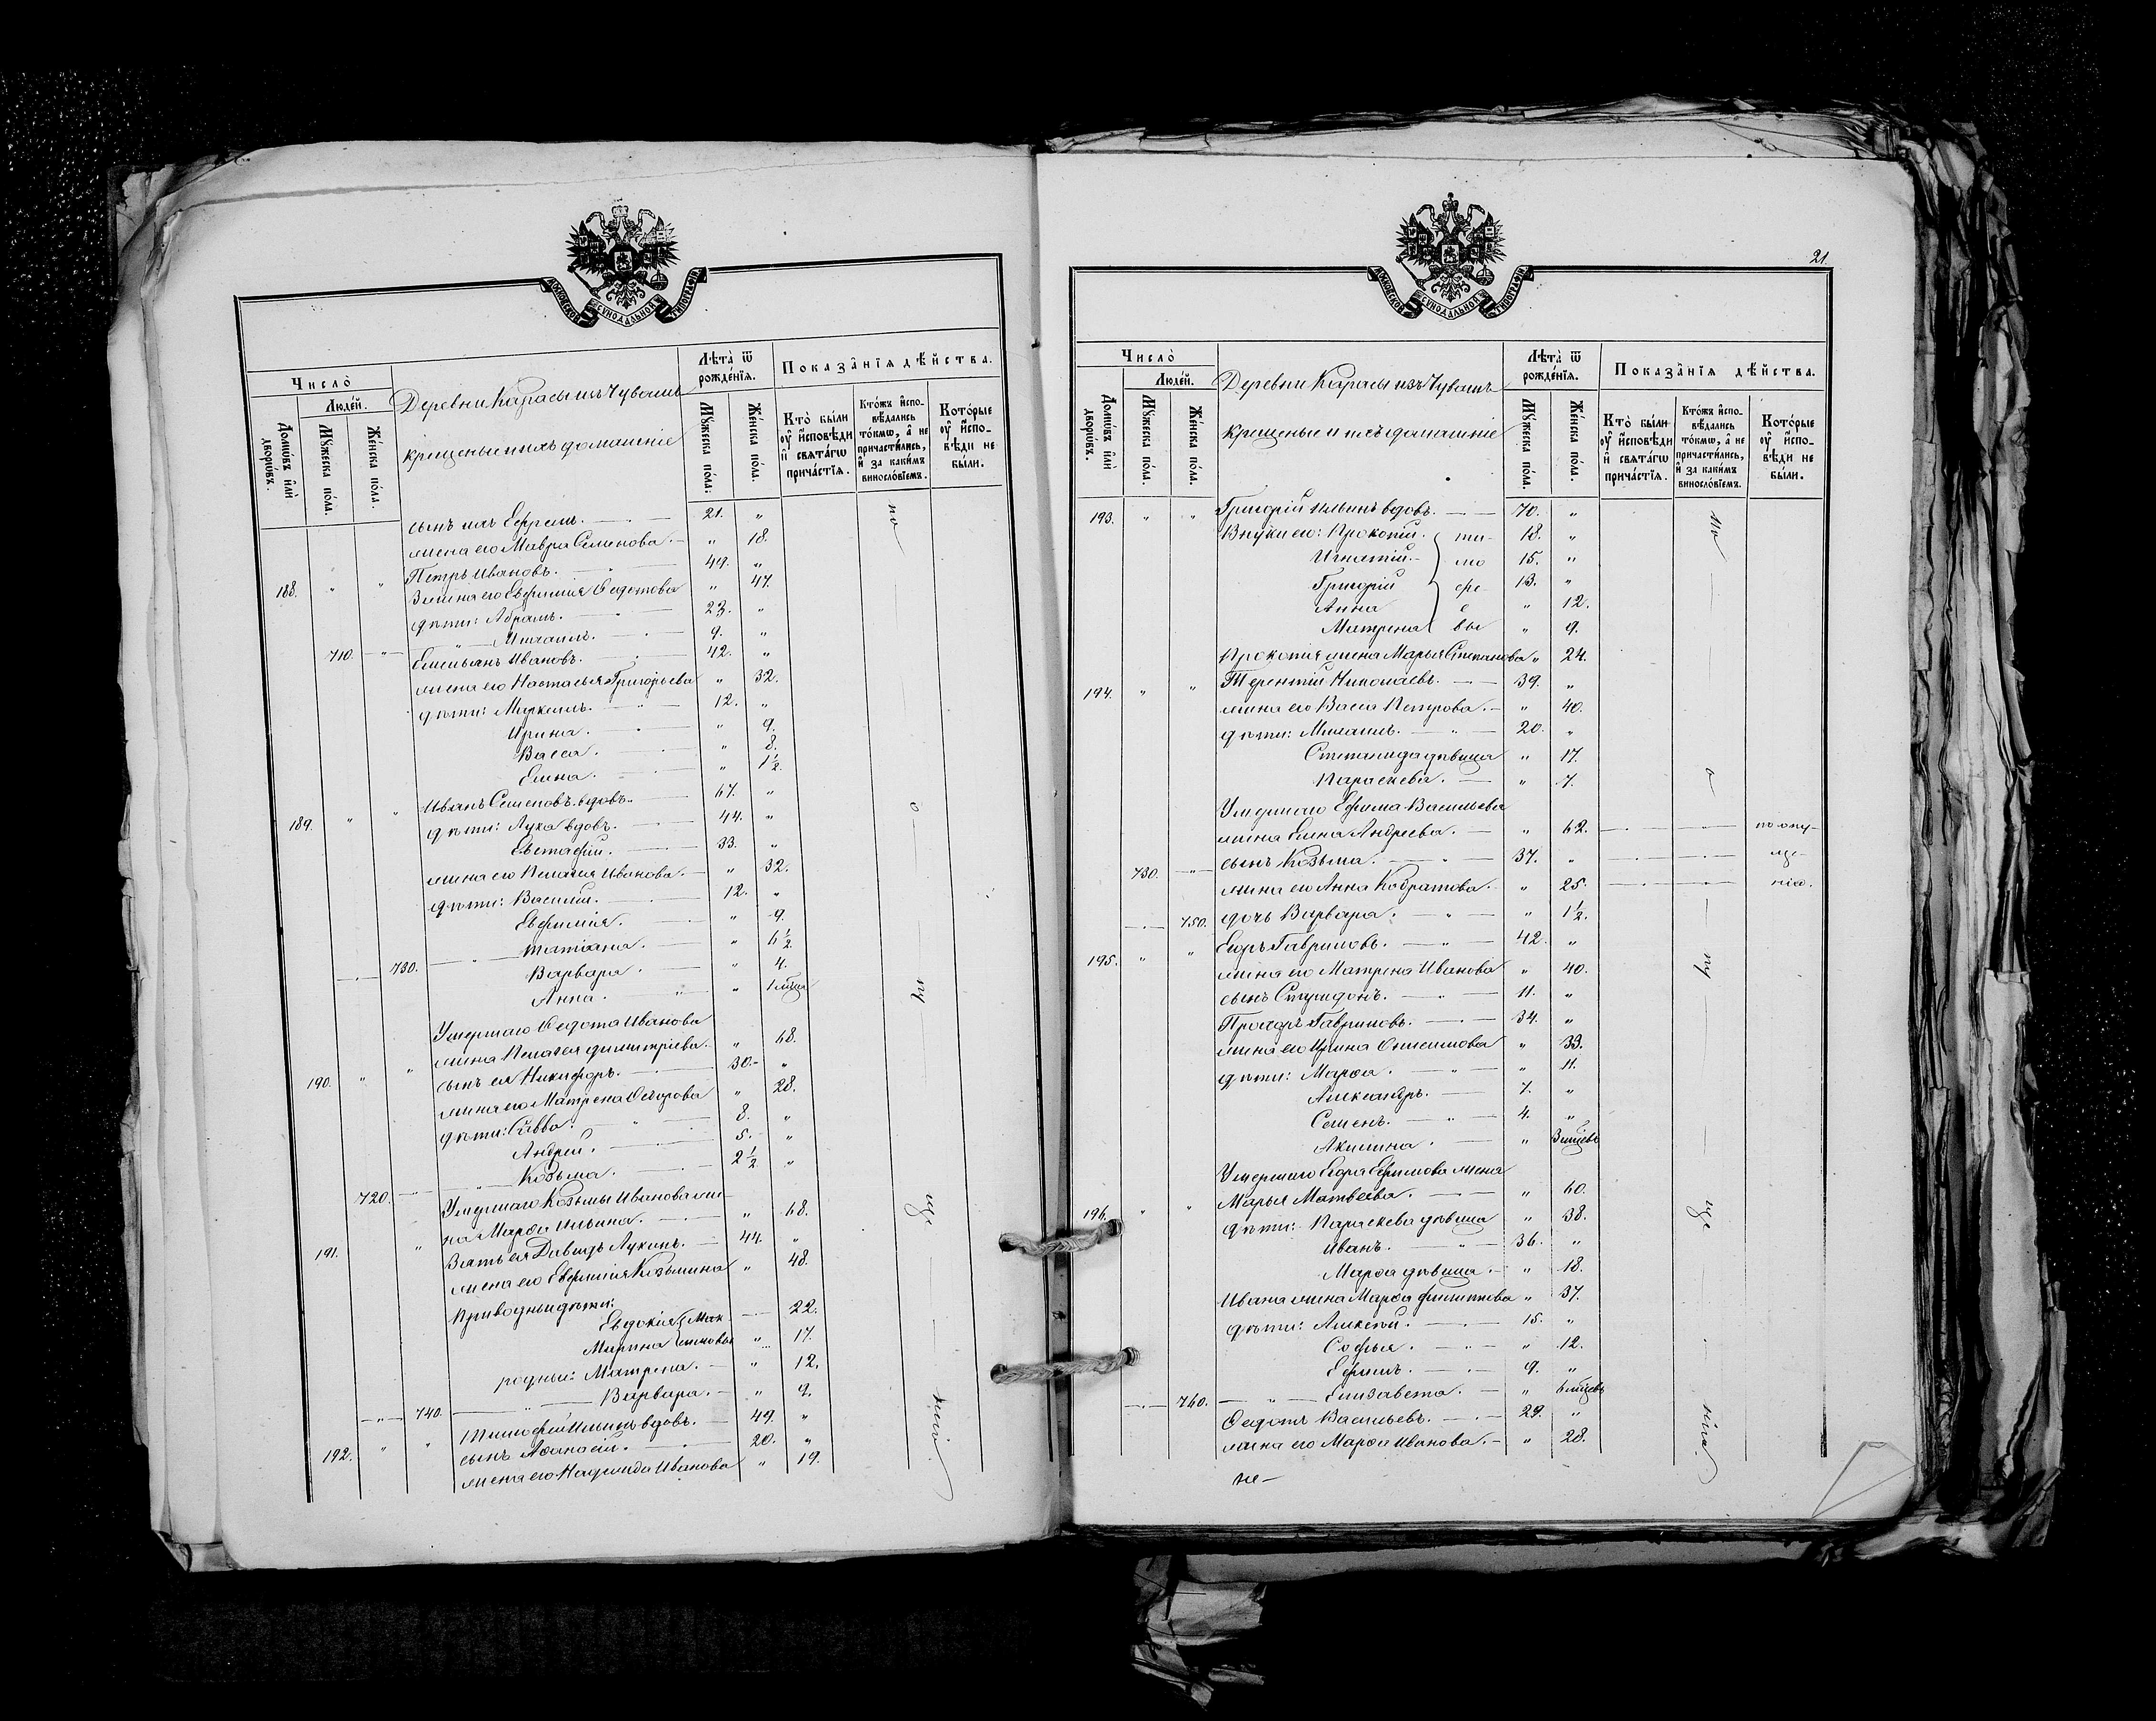 МОСКОВСКОЙ СѴНОДАЛЬНОЙ ТИПОГРАФІИ
Число̀
Людей.
Домѡвъ и҆лѝ дворѡвъ.
Мꙋжеска по́ла.
Же́нска по́ла.
Деревни Карасы изъ Чувашъ
крещеные и ихъ домашніе
Лѣта̀ ѿ рожде́нїѧ.
Мꙋжеска по́ла.
Же́нска по́ла.
Показа̑нїѧ дѣ́йства.
Кто̀ бы́ли ᲂу҆ и҆сповѣди и҆ свѧта́гѡ причастїѧ.
Кто́жъ и҆сповѣдались то́кмѡ, а҆ не причасти́лись, и҆ за каки́мъ винословїемъ.
Кото́рые ᲂу҆ и҆сповѣди не бы́ли.
сынъ ихъ Ефремъ. 21. "
жена его Мавра Семенова. " 18.
188. " " Петръ Ивановъ. 49. "
жена его Евфимія Федотова " 47.
дѣти: Абрамъ. 23. "
710. Михаилъ. 9. "
Емельянъ Ивановъ. 42. "
жена его Настасья Григорьева " 32.
дѣти: Маркелъ. 12. "
Ирина. " 9.
Васса. " 8.
Елена. " 1½.
189. " " Иванъ Семеновъ вдовъ. 67. "
дѣти: Лука вдовъ. 44. "
Евстафій. 33. "
жена его Пелагея Иванова. " 32.
дѣти: Василій. 12. "
Евфимія. " 9.
Татіана. " 6½.
730. Варвара. " 4.
Анна.
Умершаго Федота Иванова
жена Пелагея Димитріева. " 68.
190. " " сынъ ея Никифоръ. 30. "
жена его Матрена Федорова " 28.
дѣти: Савва. 8. "
Андрей. 5. "
720. Козьма. 2½ "
Умершаго Козьмы Иванова же-
191. " на Марѳа Ильина. " 68.
Зять ея Давидъ Лукинъ. 44. "
жена его Евфимія Козьмина " 48.
Приводныя дѣти:
Евдокія 22.
Марина " 17.
родныя: Матрена. " 12.
740. Варвара. " 9.
Тимофей Ильинъ вдовъ. 49. "
192. " " сынъ Аѳанасій. 20. "
жена его Надежда Иванова " 19.
по
о
пу
ще
нію.
21.
МОСКОВСКОЙ СѴНОДАЛЬНОЙ ТИПОГРАФІИ
Число̀
Людей.
Домѡвъ и҆лѝ дворѡвъ.
Мꙋжеска по́ла.
Же́нска по́ла.
Деревни Карасы изъ Чувашъ
крещеные и ихъ домашніе
Лѣта̀ ѿ рожде́нїѧ.
Мꙋжеска по́ла.
Же́нска по́ла.
Показа̑нїѧ дѣ́йства.
Кто̀ бы́ли ᲂу҆ и҆сповѣди и҆ свѧта́гѡ причастїѧ.
Кто́жъ и҆сповѣдались то́кмѡ, а҆ не причасти́лись, и҆ за каки́мъ винословїемъ.
Кото́рые ᲂу҆ и҆сповѣди не бы́ли.
193. " " Григорій Ильинъ вдовъ. 70. "
Внуки его: Прокопій. ти- 18. "
Игнатій. мо 15. "
Григорій фе- 13. "
Анна е " 12.
Матрена вы " 9.
Прокопія жена Марья Степанова " 24.
194. " " Терентій Николаевъ. 39. "
жена его Васса Петрова. " 40.
дѣти: Михаилъ. 20. "
Степанида дѣвица " 17.
Параскева. " 7.
Умершаго Ефима Васильева
жена Елена Андреева. " 62. по опу-
730. сынъ Козьма. 37. " ще-
жена его Анна Кодратова. " 25. нію.
750. дочь Варвара. " 1½.
195. " " Егоръ Гавриловъ. 42. "
жена его Матрена Иванова " 40.
сынъ Спиридонъ. 11. "
Прохоръ Гавриловъ. 34. "
жена его Ирина Онисимова " 33.
дѣти: Марѳа. " 11.
Александръ. 7. "
Семенъ. 4. "
Акилина. " 3 мѣсев
Умершаго Ефимова жена
196. " " Марья Матвеева. " 60.
дѣти: Параскева дѣвица " 38.
Иванъ. 36. "
Марѳа дѣвица. " 18.
Ивана жена Марѳа Филиппова " 37.
дѣти: Алексей. 15. "
Софья. " 12.
Ефимъ. 9. "
740. Елизавета. " 6 мѣсев
Федотъ Васильевъ. 29. "
жена его Марѳа Иванова. " 28.
по
о
пу
ще
нію.
не-